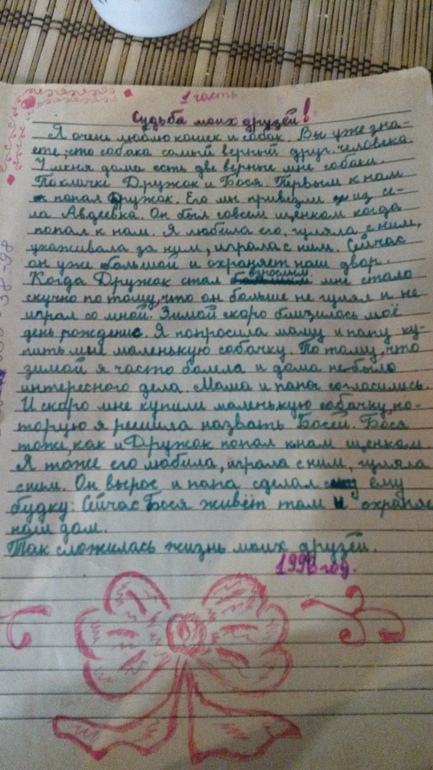 1 часть.
Судьба моих друзей!
Я очень люблю кошек и собак. Вы уже зна-
ете, что собака самый верный друг человека.
У меня дома есть две верные мне собаки.
По кличке Дружок и Бося. Первым к нам
попал Дружок. Его мы привезли из се-
ла Авдеевка. Он был совсем щенком когда
попал к нам. Я любила его, гуляла с ним,
ухаживала за ним, игралась с ним. Сейчас
он уже большой и охраняет наш двор.
Когда Дружок стал взрослым мне стало
скучно по тому, что он больше не гулял и не
играл со мной. Зимой скоро близилось моё
день рождение. Я попросила маму и папу ку-
пить мне маленькую собачку. По тому, что
зимой я часто болела и дома не было
интересного дела. Мама и папа согласились.
И скоро мне купили маленькую собачку, ко-
торую я решила назвать Босей. Бося
тоже, как и Дружок попал к нам щенком.
Я тоже его любила, играла с ним, гуляла
с ним. Он вырос и папа сделал ему
будку. Сейчас Бося живёт там и охраняе
наш дом.
Так сложилась жизнь моих друзей.
1998 год.